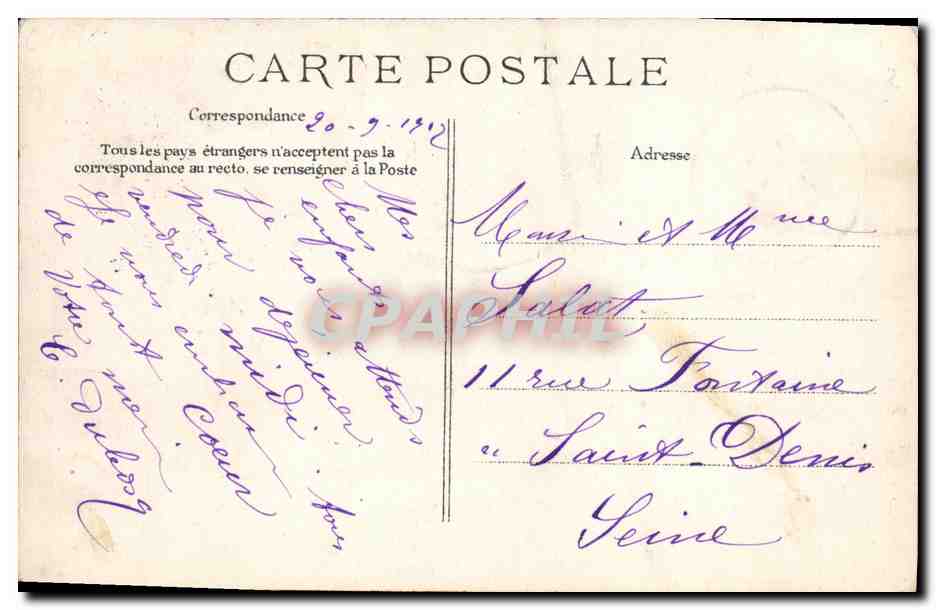 CARTE POSTALE
Correspondance 20-9-1912
Tous les pays étrangers n'acceptent pas la
correspondance au recto. se renseigner à la Poste
Mes
chers
enfants
je vous attends
pour dejeuner
vendredi midi tous
Je vous embrasse
de tout mon Coeur
Votre
C. Dubosq
Adresse
Monsi et Mme
Salat
11 rue Fontaine
a Saint-Denis
Seine
CPAPHIL